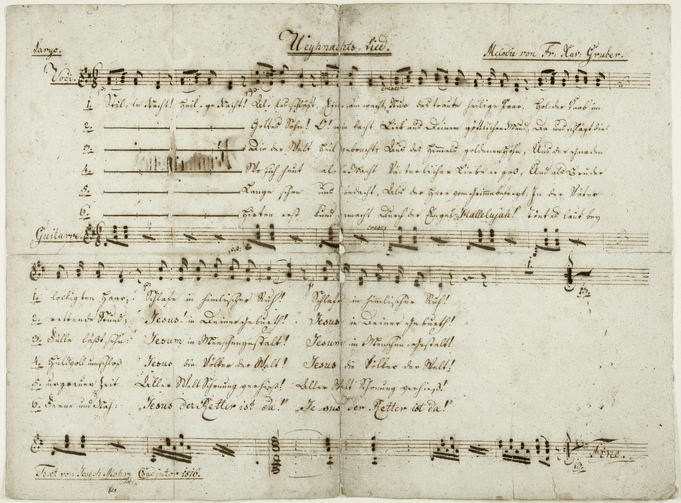 Weyhnachts-Lied.
Largo.
Melodie von Fr. Xav. Gruber.
1. Stille Nacht! Heilige Nacht! Alles schläft. Einsam wacht, Nur das traute heilige Paar. Holder Knab' im
2. Gottes Sohn! O! wie lacht Lieb' aus Deinem göttlichen Mund, Da uns schlägt die
3. Die der Welt Heil gebracht, Aus des Himmels goldenen Höhn,
4. Wo sich heut alle Macht Väterlicher Liebe ergoß, Und als Bruder
5. Lange schon uns bedacht, Als der Herr vom Grimme befreyt, In der Väter
6. Hirten erst kund gemacht Durch der Engel Hallelujah! Tönt es laut bey
Guitarre.
cresc.
1. lockigten Haar; Schlafe in himlischer Ruh! Schlafe in himlischer Ruh!
2. rettende Stund; Jesus! in Deiner Geburth! Jesus! in Deiner Geburth!
3. Jesum in Menschengestalt! Jesum in Menschengestalt!
4. huldvoll umschloß Jesus die Völker der Welt! Jesus die Völker der Welt!
5. urgrauer Zeit Aller Welt Schonung verhieß! Aller Welt Schonung verhieß!
6. Ferne und Nah: "Jesus der Retter ist da!" "Jesus der Retter ist da!"
Fine.
Text von Joseph Mohr Coadjutor 1816.